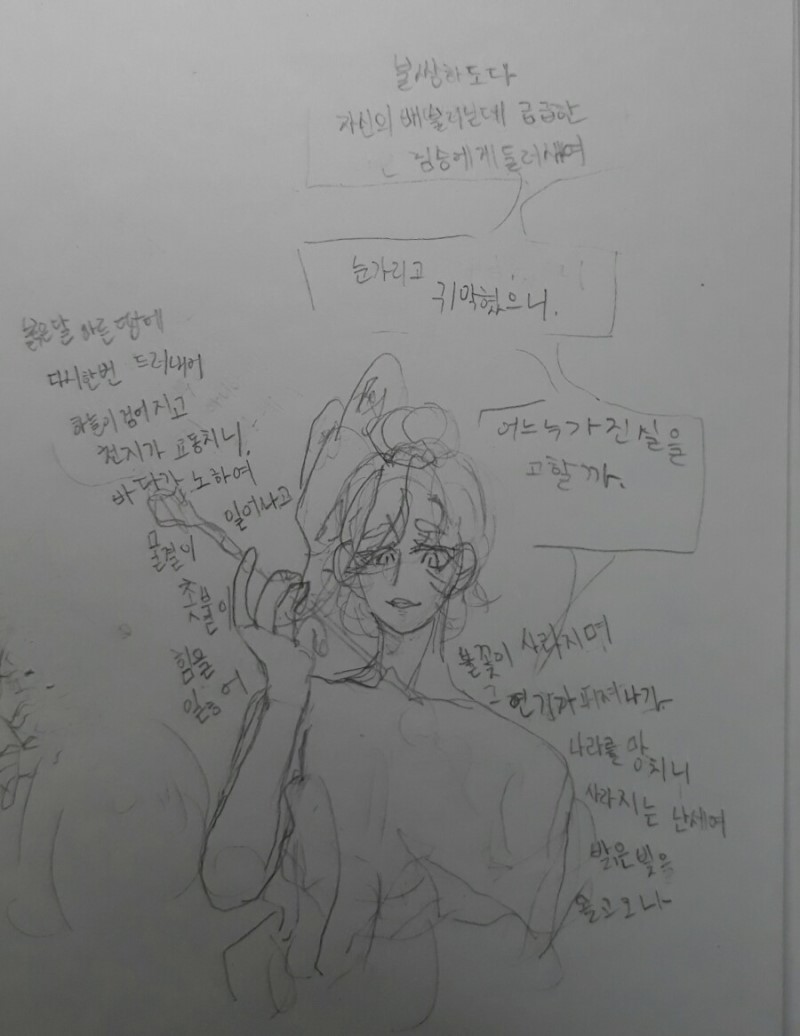 불쌍하도다
자신의 배불리는데 급급한
짐승에게 둘러쌔여
눈가리고
귀막혔으니.
어느누가 진실을
고할까.
붉은달 마른땅에
다시한번 드러내어
하늘이 검어지고
천지가 요동치니,
바닷가 노하여
일어나고
물결이
촛불이
힘을
잃어
불꽃이 사라지며
그 연기가 퍼져나가
나라를 망치니
사라지는 난세여
밝은빛을
몰고오나